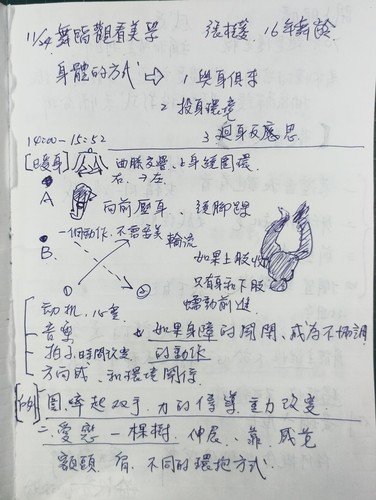 11/24 舞蹈觀看美學 張 16年舞齡
身體的方式 ⇨ 1 與身俱來
2 投身環境
3 迴身反應思
14:00-15:52
[暖身] 曲膝交叠,上身繞圓環
右→左
A 向前壓身、 腳
B. 一個動作,不需審美 輪流
如果上肢
只有身和下肢
蠕動前進
① ②
动机,心境
音樂 如果身障的開閉、成為不協調
拍子,時間改变 的動作
方向感,和環境關係
[例] 圍,牽起双手,力的傳導,重力改变
二、愛戀一棵樹,伸展、靠,感覺
額頭、肩,不同的環抱方式.